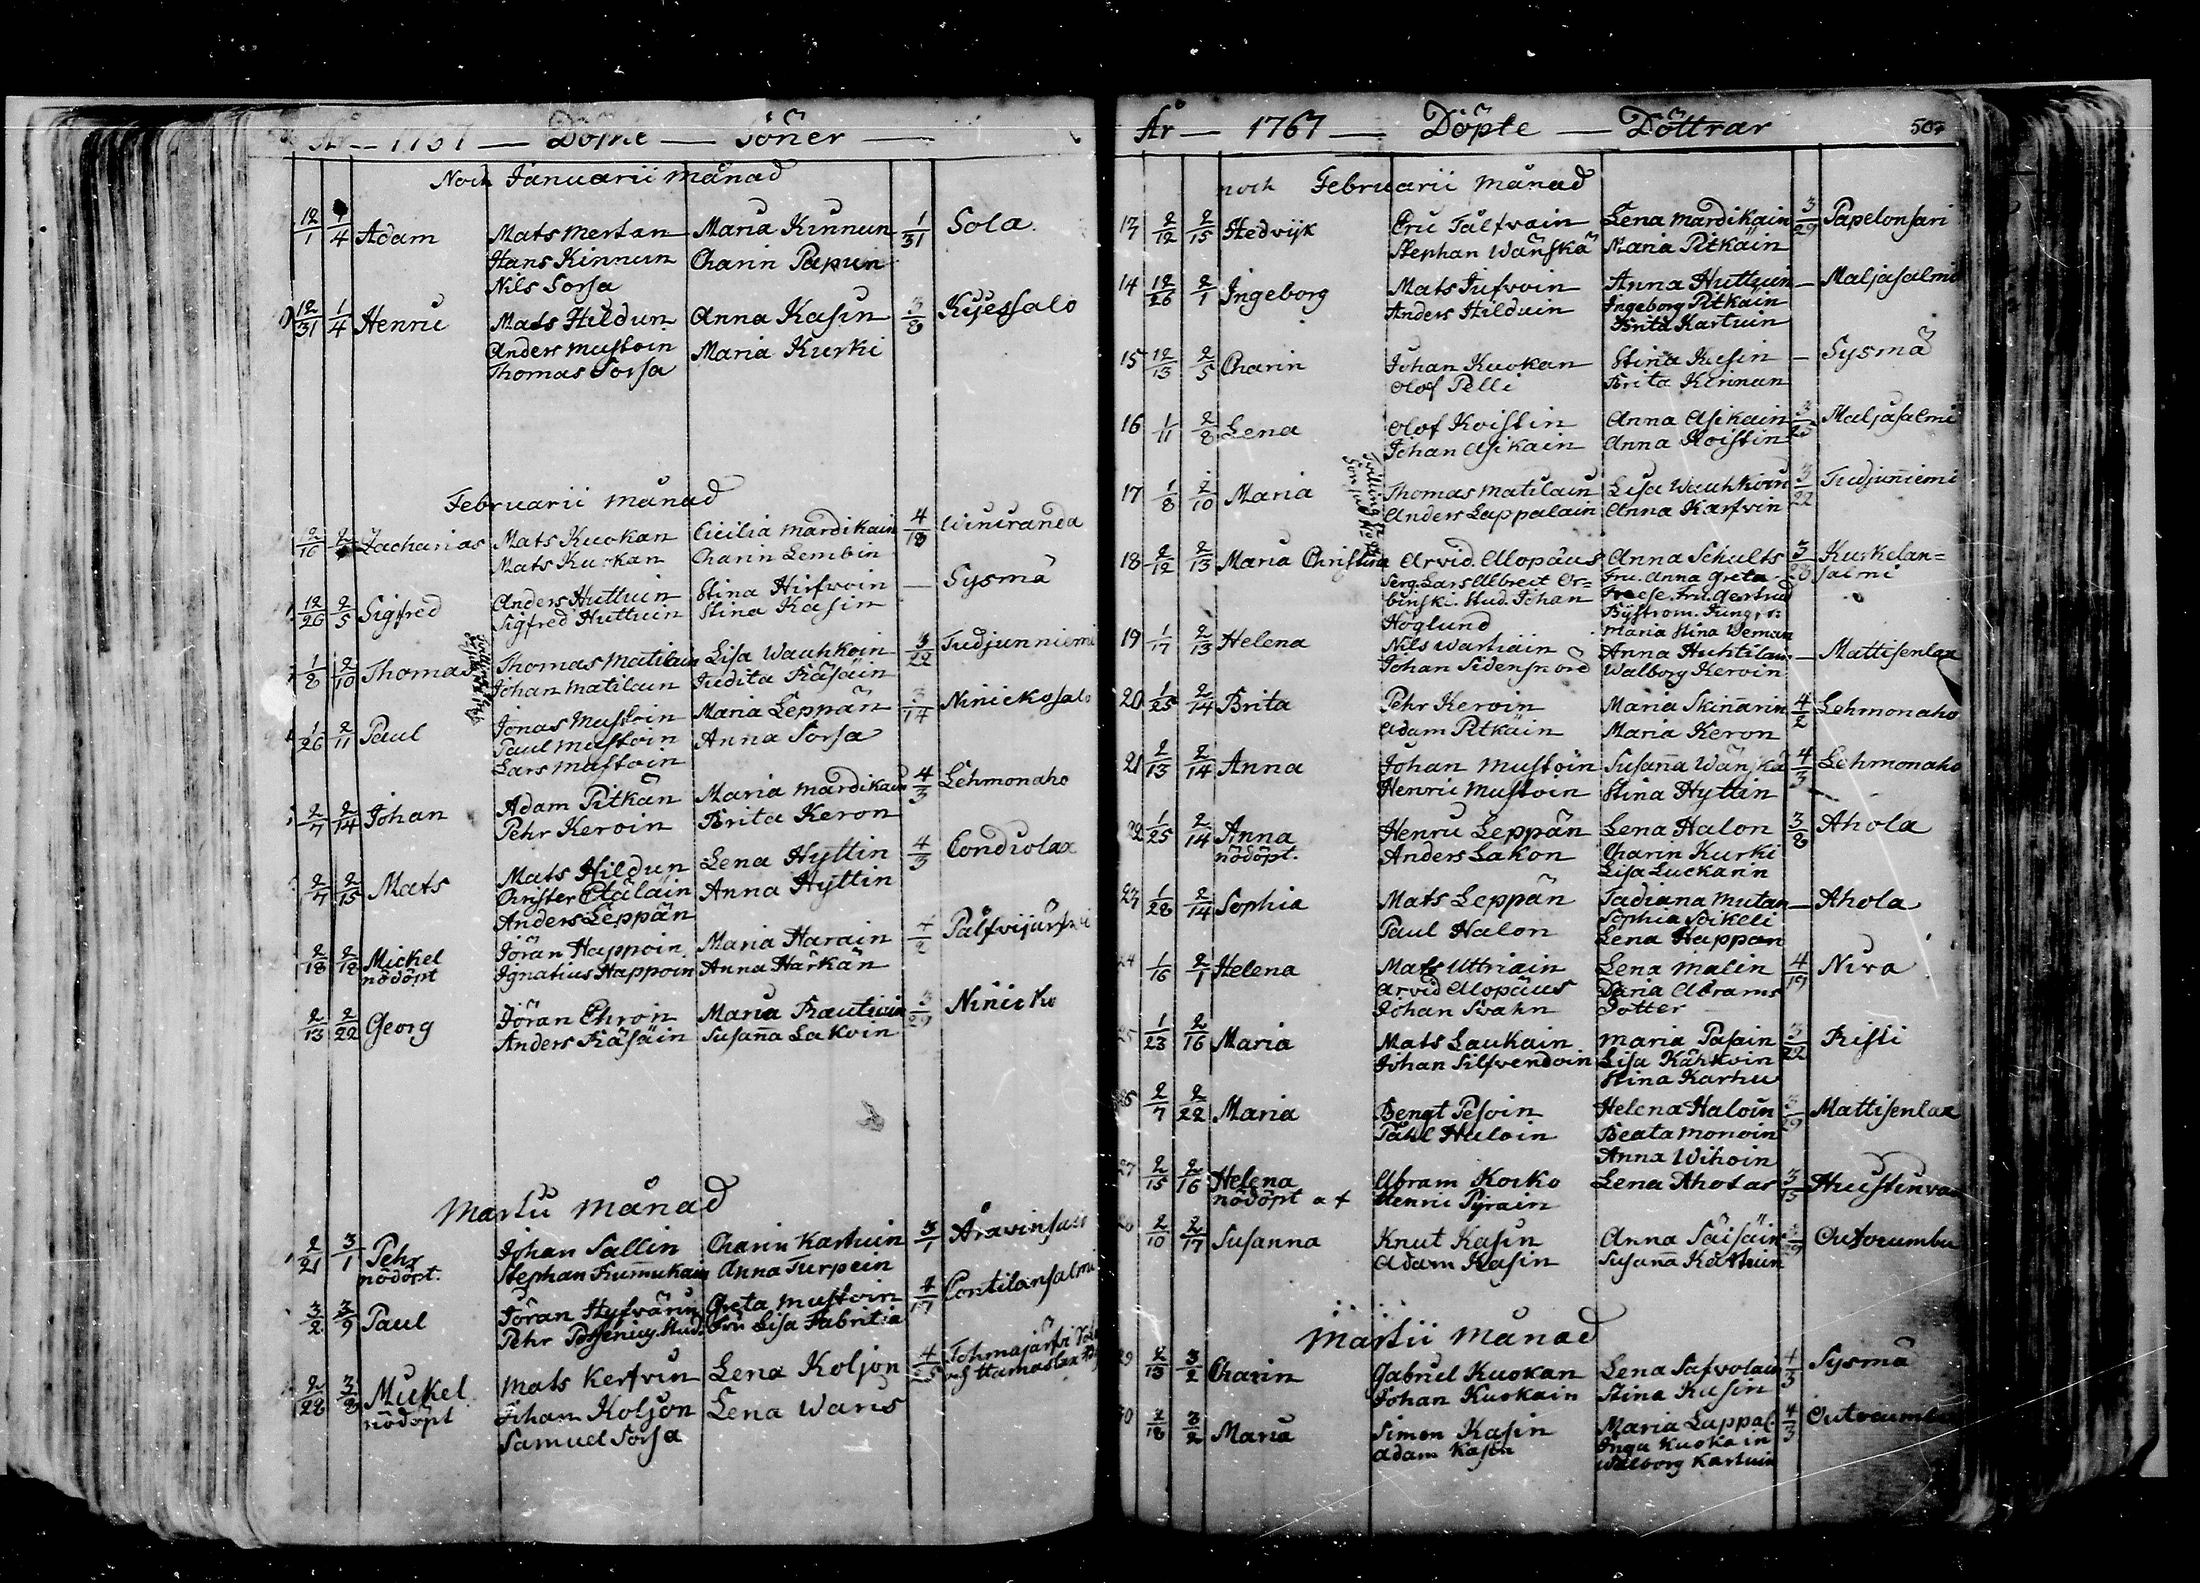 År — 1767 — Döpte — Söner —
Noch Januarii månad
12/1 1/4 Adam Mats Mertan Maria Kinnun 1/31 Sola
Hans Kinnun Charin Papun
Nils Sorsa
12/31 1/4 Henric Mats Hildun Anna Kasin 3/8 Kijessalo
Anders Mustoin Maria Kurki
Thomas Sorsa
Februarii månad
12/16 Zacharias Mats Kuokan Cicilia Mardikain 4/18
Mats Kuokan Charin Lembin
12/26 2/5 Sigfred Anders Huttuin Stina Hirfvoin — Sysmä
Sigfred Huttuin Stina Kasin
1/8 2/10 Thomas Thomas Matilain Lisa Wauhkoin 3/22 Tudjunniemi
Johan Matilain Judita Räsäin
1/26 2/11 Paul Jonas Mustoin Maria Leppän 3/14 Ninickosalo
Paul Mustoin Anna Sorsa
Lars Mustoin
2/7 2/14 Johan Adam Pitkän Maria Mardikain 4/3 Lehmonaho
Pehr Keroin Brita Keron
2/7 2/15 Mats Mats Hildun Lena Hyttin 4/3 Condiolax
Christer Etäläin Anna Hyttin
Anders Leppän
2/18 2/18 Mickel Jöran Happoin Maria Harain 4/2 Pålfvijärfvi
nödöpt Ignatius Happoin Anna Härkän
2/13 2/22 Georg Jöran Ehron Maria Rautiain 3/29 Ninicko
Anders Räsäin Susan̄a Lakoin
Martii månad
2/21 3/1 Pehr Johan Sallin Charin Karhuin 3/1 Aravinsalo
nödöpt. Stephan Rum̄ukain Anna Turpein
3/2 3/9 Paul Jöran Hyfvärin Greta Mustoin 4/17 Contilansalmi
Pehr Stud. Fru Lisa Fabritia
2/28 3/8 Mickel Mats Kerfvin Lena Koljon 4/25 Tohmajärfvi
nödöpt Johan Koljon Lena Waris
Samuel Sorsa
År — 1767 — Döpte — Döttrar 507
noch Februarii Månad
13 2/12 2/15 Hedvijk Eric Talfvain Lena Mardikain 3/29 Papelonsari
Stephan Wänskä Maria Pitkäin
14 12/26 2/1 Ingeborg Mats Jufvoin Anna Huttuin — Maljasalmi
Anders Hilduin Ingeborg Pitkäin
Brita Kartuin
15 12/13 2/5 Charin Johan Kuokan Stina Kasin — Sysmä
Olof Pelli Brita Kinnun
16 1/11 2/8 Lena Olof Koistin Anna Asikain 3/25 Maljasalmi
Johan Asikain Anna Koistin
17 1/8 2/10 Maria Thomas Matilain Lisa Wauhkoin 3/22 Tudjun̄iemi
Anders Lappalain Anna Karfvin
18 2/12 2/13 Maria Christina Arvid Alopäus Anna Schults 3/23 Kuskelan=
Serg. Lars Albrect Or= Fru. Anna Greta salmi
binski. Stud. Johan Freese. Fru. Gertrud
Höglund Byström. Jungfr:
Maria Stina Weman
19 1/7 2/13 Helena Nils Wartiain Anna Huhtilain — Mattisenlax
Johan Sidensnöre Walborg Keroin
20 1/25 2/14 Brita Pehr Keroin Maria Skin̄arin 4/2 Lehmonaho
Adam Pitkäin Maria Keron
21 2/13 2/14 Anna Johan Mustoin Susan̄a Wänskä 4/3 Lehmonaho
Henric Mustoin Stina Hyttin
22 1/25 2/14 Anna Henric Leppän Lena Halon 3/8 Ahola
nödöpt. Anders Lakon Charin Kurki
Lisa Luckarin
23 1/28 2/14 Sophia Mats Leppän Tadiana Mutan — Ahola
Paul Halon Sophia Soikeli
Lena Happon
24 1/16 2/1 Helena Mats Uttriain Lena Malin 4/19 Niva
Arvid Alopäus Daria Abrams
Johan Svahn Dotter
25 1/23 2/16 Maria Mats Laukain Maria Pasain 3/22 Risti
Johan Silfvendoin Lisa Kähkoin
Stina Karhu
26 2/7 2/22 Maria Bengt Pesoin Helena Haloin 3/29 Mattisenlax
Påhl Haloin Beata Monoin
Anna Wihoin
27 2/15 2/16 Helena Abram Koiko Lena Ahotar 3/15
nödöpt a f Henric Pyrain
28 2/10 2/17 Susanna Knut Kasin Anna Säisäin 3/29 Outocumbu
Adam Kasin Susan̄a Karhuin
Martii Månad
29 2/13 3/2 Charin Gabriel Kuokan Lena Safvolain 4/3 Sysmä
Johan Kuokain Stina Kusin
30 2/18 3/2 Maria Simon Kasin Maria Lappal. 4/3 Outocumbu
Adam Kason Inga Kuokain
Walborg Karhuin